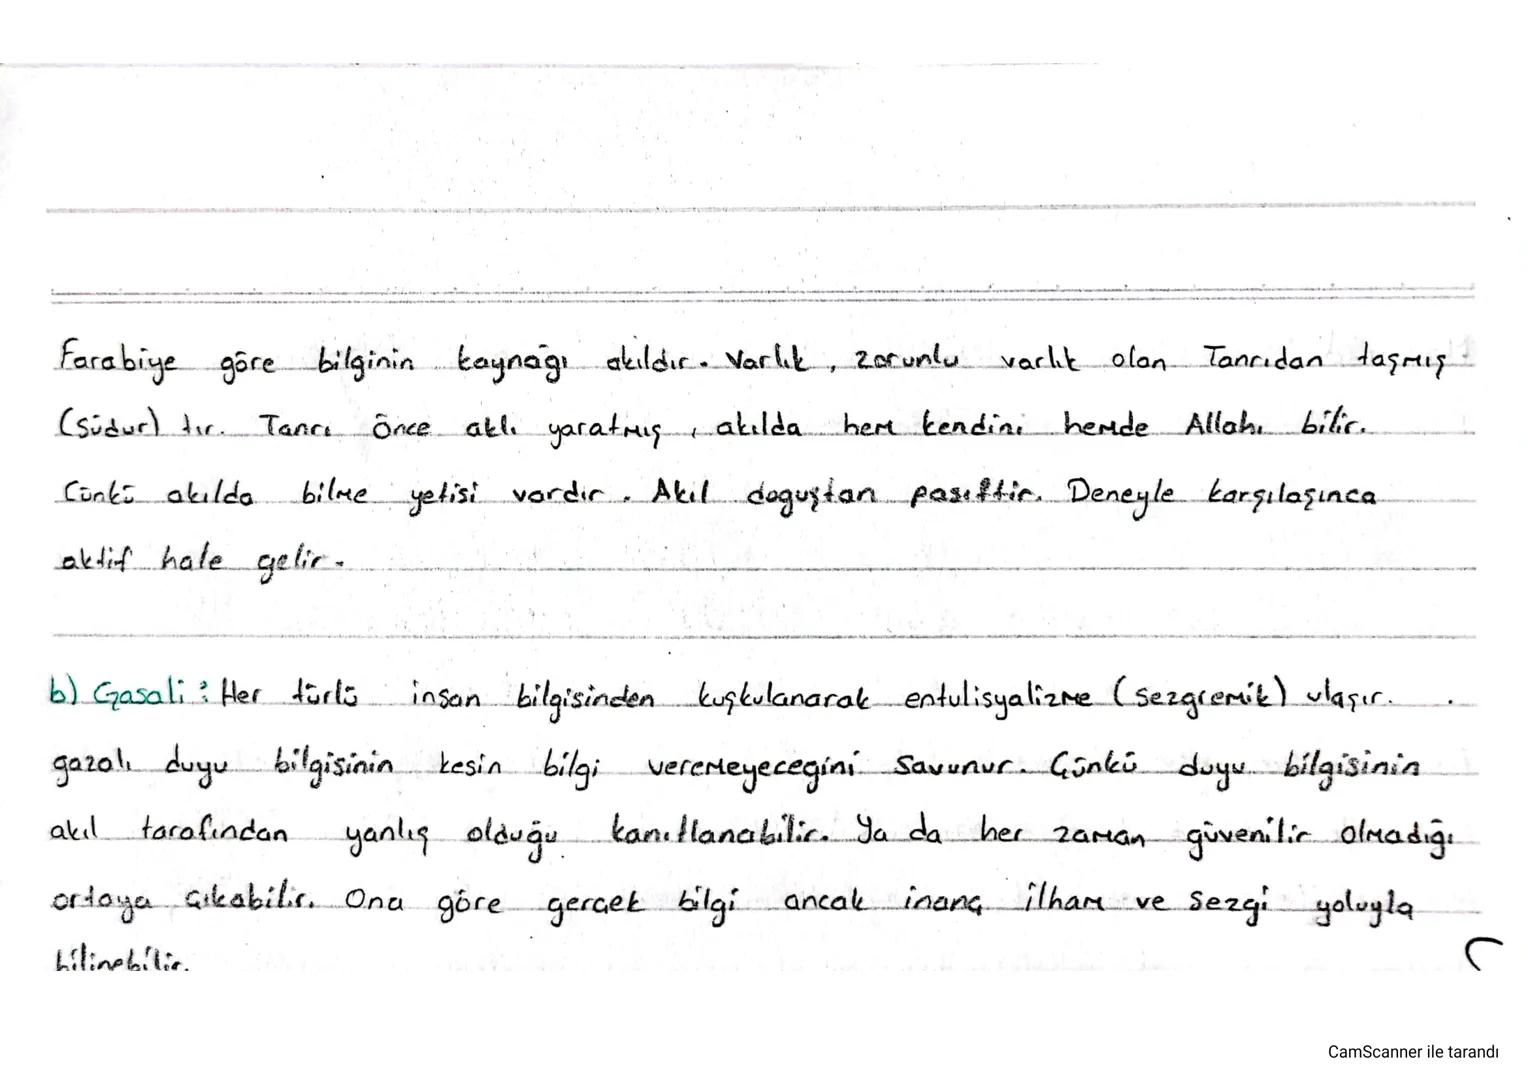 Farabiye göre bilginin kaynağı akıldır. Varlık, zorunlu varlık olan Tanrıdan taşmış
(Südur) tır. Tanrı önce aklı yaratmış, akılda hem kendini hemde Allahı bilir.
Cünkü akılda bilme yetisi vardır. Akıl doguştan pasiftir. Deneyle karşılaşınca
aktif hale gelir.
b) Gasali: Her türlü insan bilgisinden kuşkulanarak entulisyalizme (sezgicmik) ulaşır.
gazalı duyu bilgisinin kesin bilgi veremeyecegini Savunur. Çünkü duyu bilgisinin
akıl tarafından yanlış olduğu kanıtlanabilir. Ya da her zaman güvenilir olmadığı
ortaya çıkabilir. Ona göre gerçek bilgi ancak inanç ilham ve Sezgi yoluyla
bilinebilir.
CamScanner ile tarandı